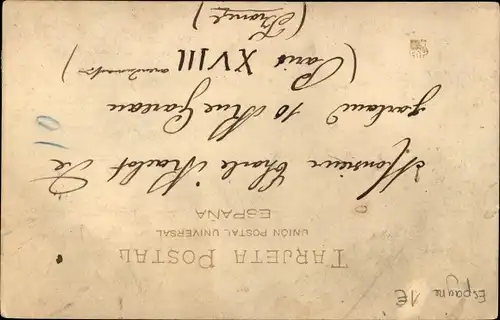 TARJETA POSTAL
UNIÓN POSTAL UNIVERSAL
ESPAÑA
Monsieur Charle Raulot de
Garland 10 Rue Gareau
(Paris XVIII arrondissement)
(France)
10
Espagne 1€